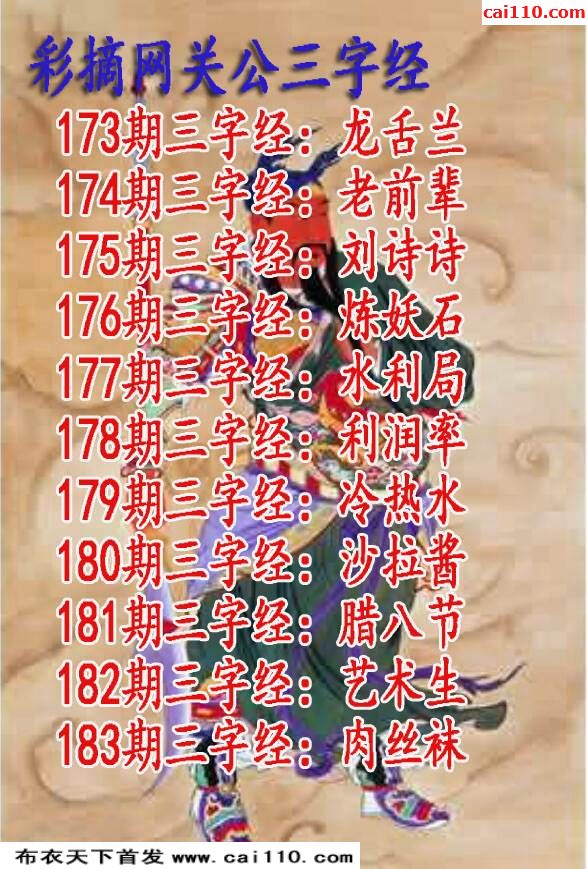 cai110.com
彩摘网关公三字经
173期三字经：龙舌兰
174期三字经：老前辈
175期三字经：刘诗诗
176期三字经：炼妖石
177期三字经：水利局
178期三字经：利润率
179期三字经：冷热水
180期三字经：沙拉酱
181期三字经：腊八节
182期三字经：艺术生
183期三字经：肉丝袜
布衣天下首发 www.cai110.com